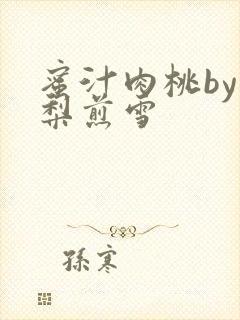 蜜汁肉桃by
梨煎雪
孫寒